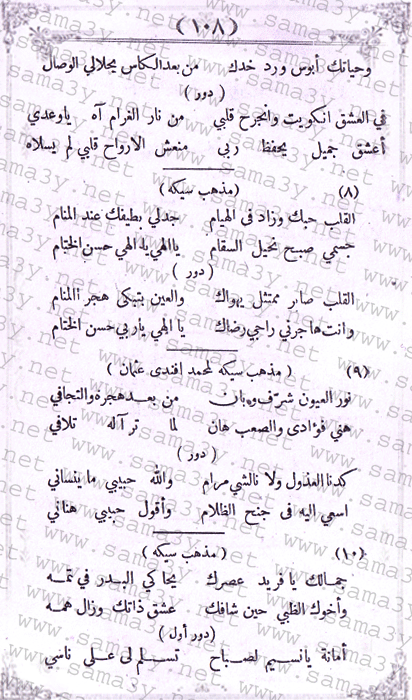 (١٠٨)
وحياتك أبوس ورد خدك من بعد الكاس يحلالي الوصال
(دور)
في العشق انكويت وانجرح قلبي من نار الغرام آه ياوعدي
أعشق جميل يحفظ ربي منعش الارواح قلبي لم يسلاه
(٨) (مذهب سيكه)
القلب حبك وزاد في الهيام جدلي بطيفك عند المنام
جسمي صبح نحيل السقام ياالهي يا الهي حسن الختام
(دور)
القلب صابر ممتثل يهواك والعين بتبكي هجر المنام
وانت هاجرني راجي رضاك يا الهي ياربي حسن الختام
(٩) (مذهب سيكه لمحمد افندي عثمان)
نور العيون شرف وبان من بعد هجره والتجافي
هني فؤادى والصعب هان لما تر آله تلافي
(دور)
كدنا العذول ولا نالشي مرام والله حبيبي ما ينساني
اسعي اليه فى جنح الظلام وأقول حبيبي هناني
(١٠) (مذهب سيكه)
جمالك يا فريد عصرك يحاكي البدر في تمه
وأخوك الظبي حين شافك عشق ذاتك وزال همه
(دور أول)
أمانة يانسيم لصباح تسلم لى على ناسي
www.sama3y.net